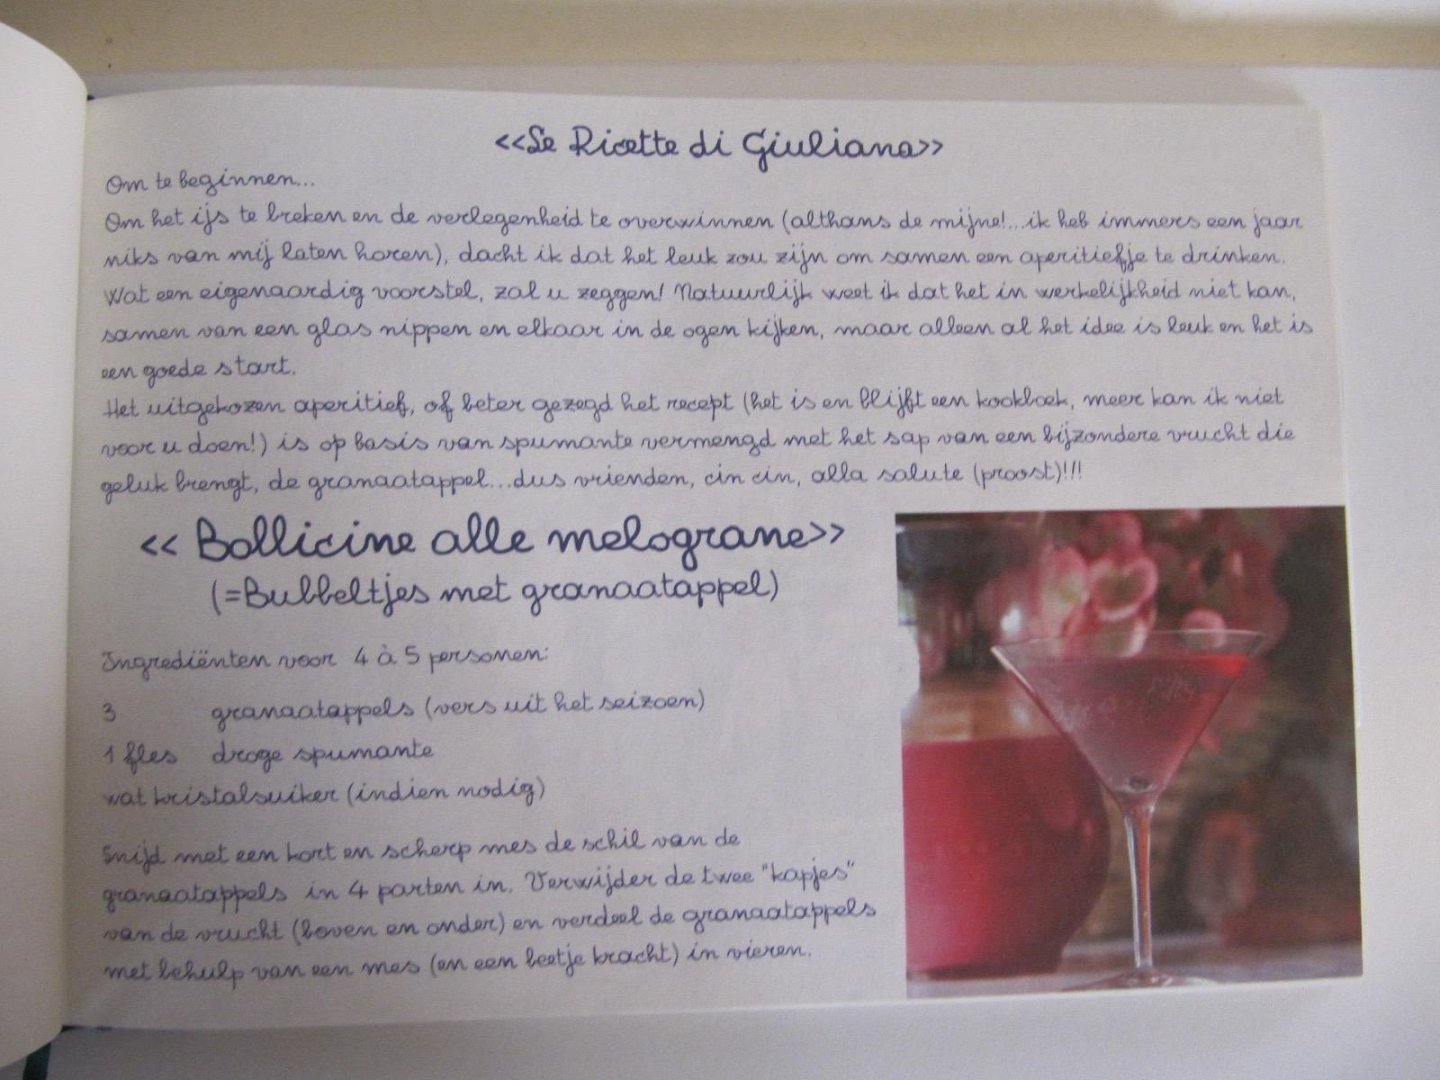 <<Le Ricette di Giuliana>>
Om te beginnen...
Om het ijs te breken en de verlegenheid te overwinnen (althans de mijne!...ik heb immers een jaar
niks van mij laten horen), dacht ik dat het leuk zou zijn om samen een aperitiefje te drinken.
Wat een eigenaardig voorstel, zal u zeggen! Natuurlijk weet ik dat het in werkelijkheid niet kan,
samen van een glas nippen en elkaar in de ogen kijken, maar alleen al het idee is leuk en het is
een goede start.
Het uitgekozen aperitief, of beter gezegd het recept (het is en blijft een kookboek, meer kan ik niet
voor u doen!) is op basis van spumante vermengd met het sap van een bijzondere vrucht die
geluk brengt, de granaatappel...dus vrienden, cin cin, alla salute (proost)!!!
<< Bollicine alle melograne>>
(=Bubbeltjes met granaatappel)
Ingrediënten voor 4 à 5 personen:
3 granaatappels (vers uit het seizoen)
1 fles droge spumante
wat kristalsuiker (indien nodig)
Snijd met een kort en scherp mes de schil van de
granaatappels in 4 parten in. Verwijder de twee "kapjes"
van de vrucht (boven en onder) en verdeel de granaatappels
met behulp van een mes (en een beetje kracht) in vieren.